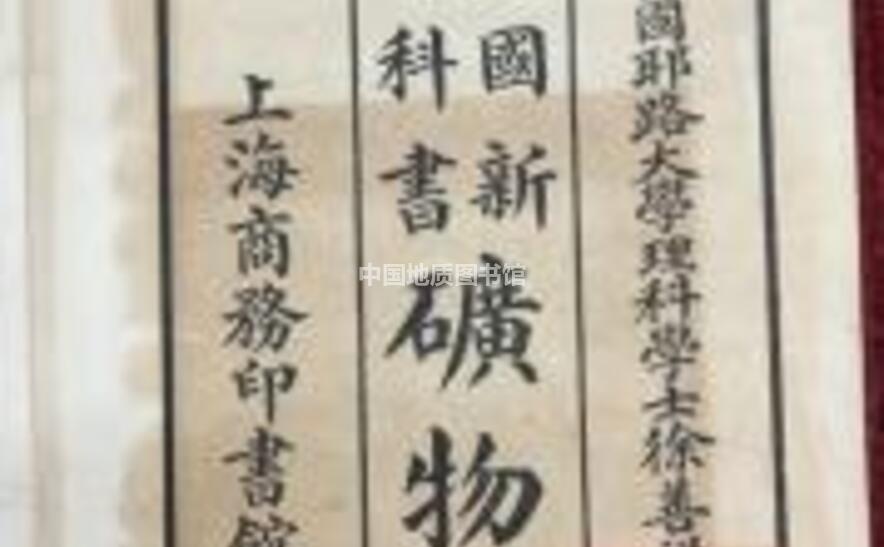 國耶路大學理科學士徐善
國新
科書
礦物
上海商務印書館
中国地质图书馆